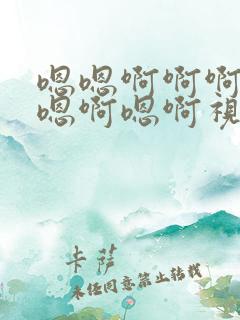 嗯嗯啊啊啊
嗯啊嗯啊视
卡萨
未经同意禁止转载